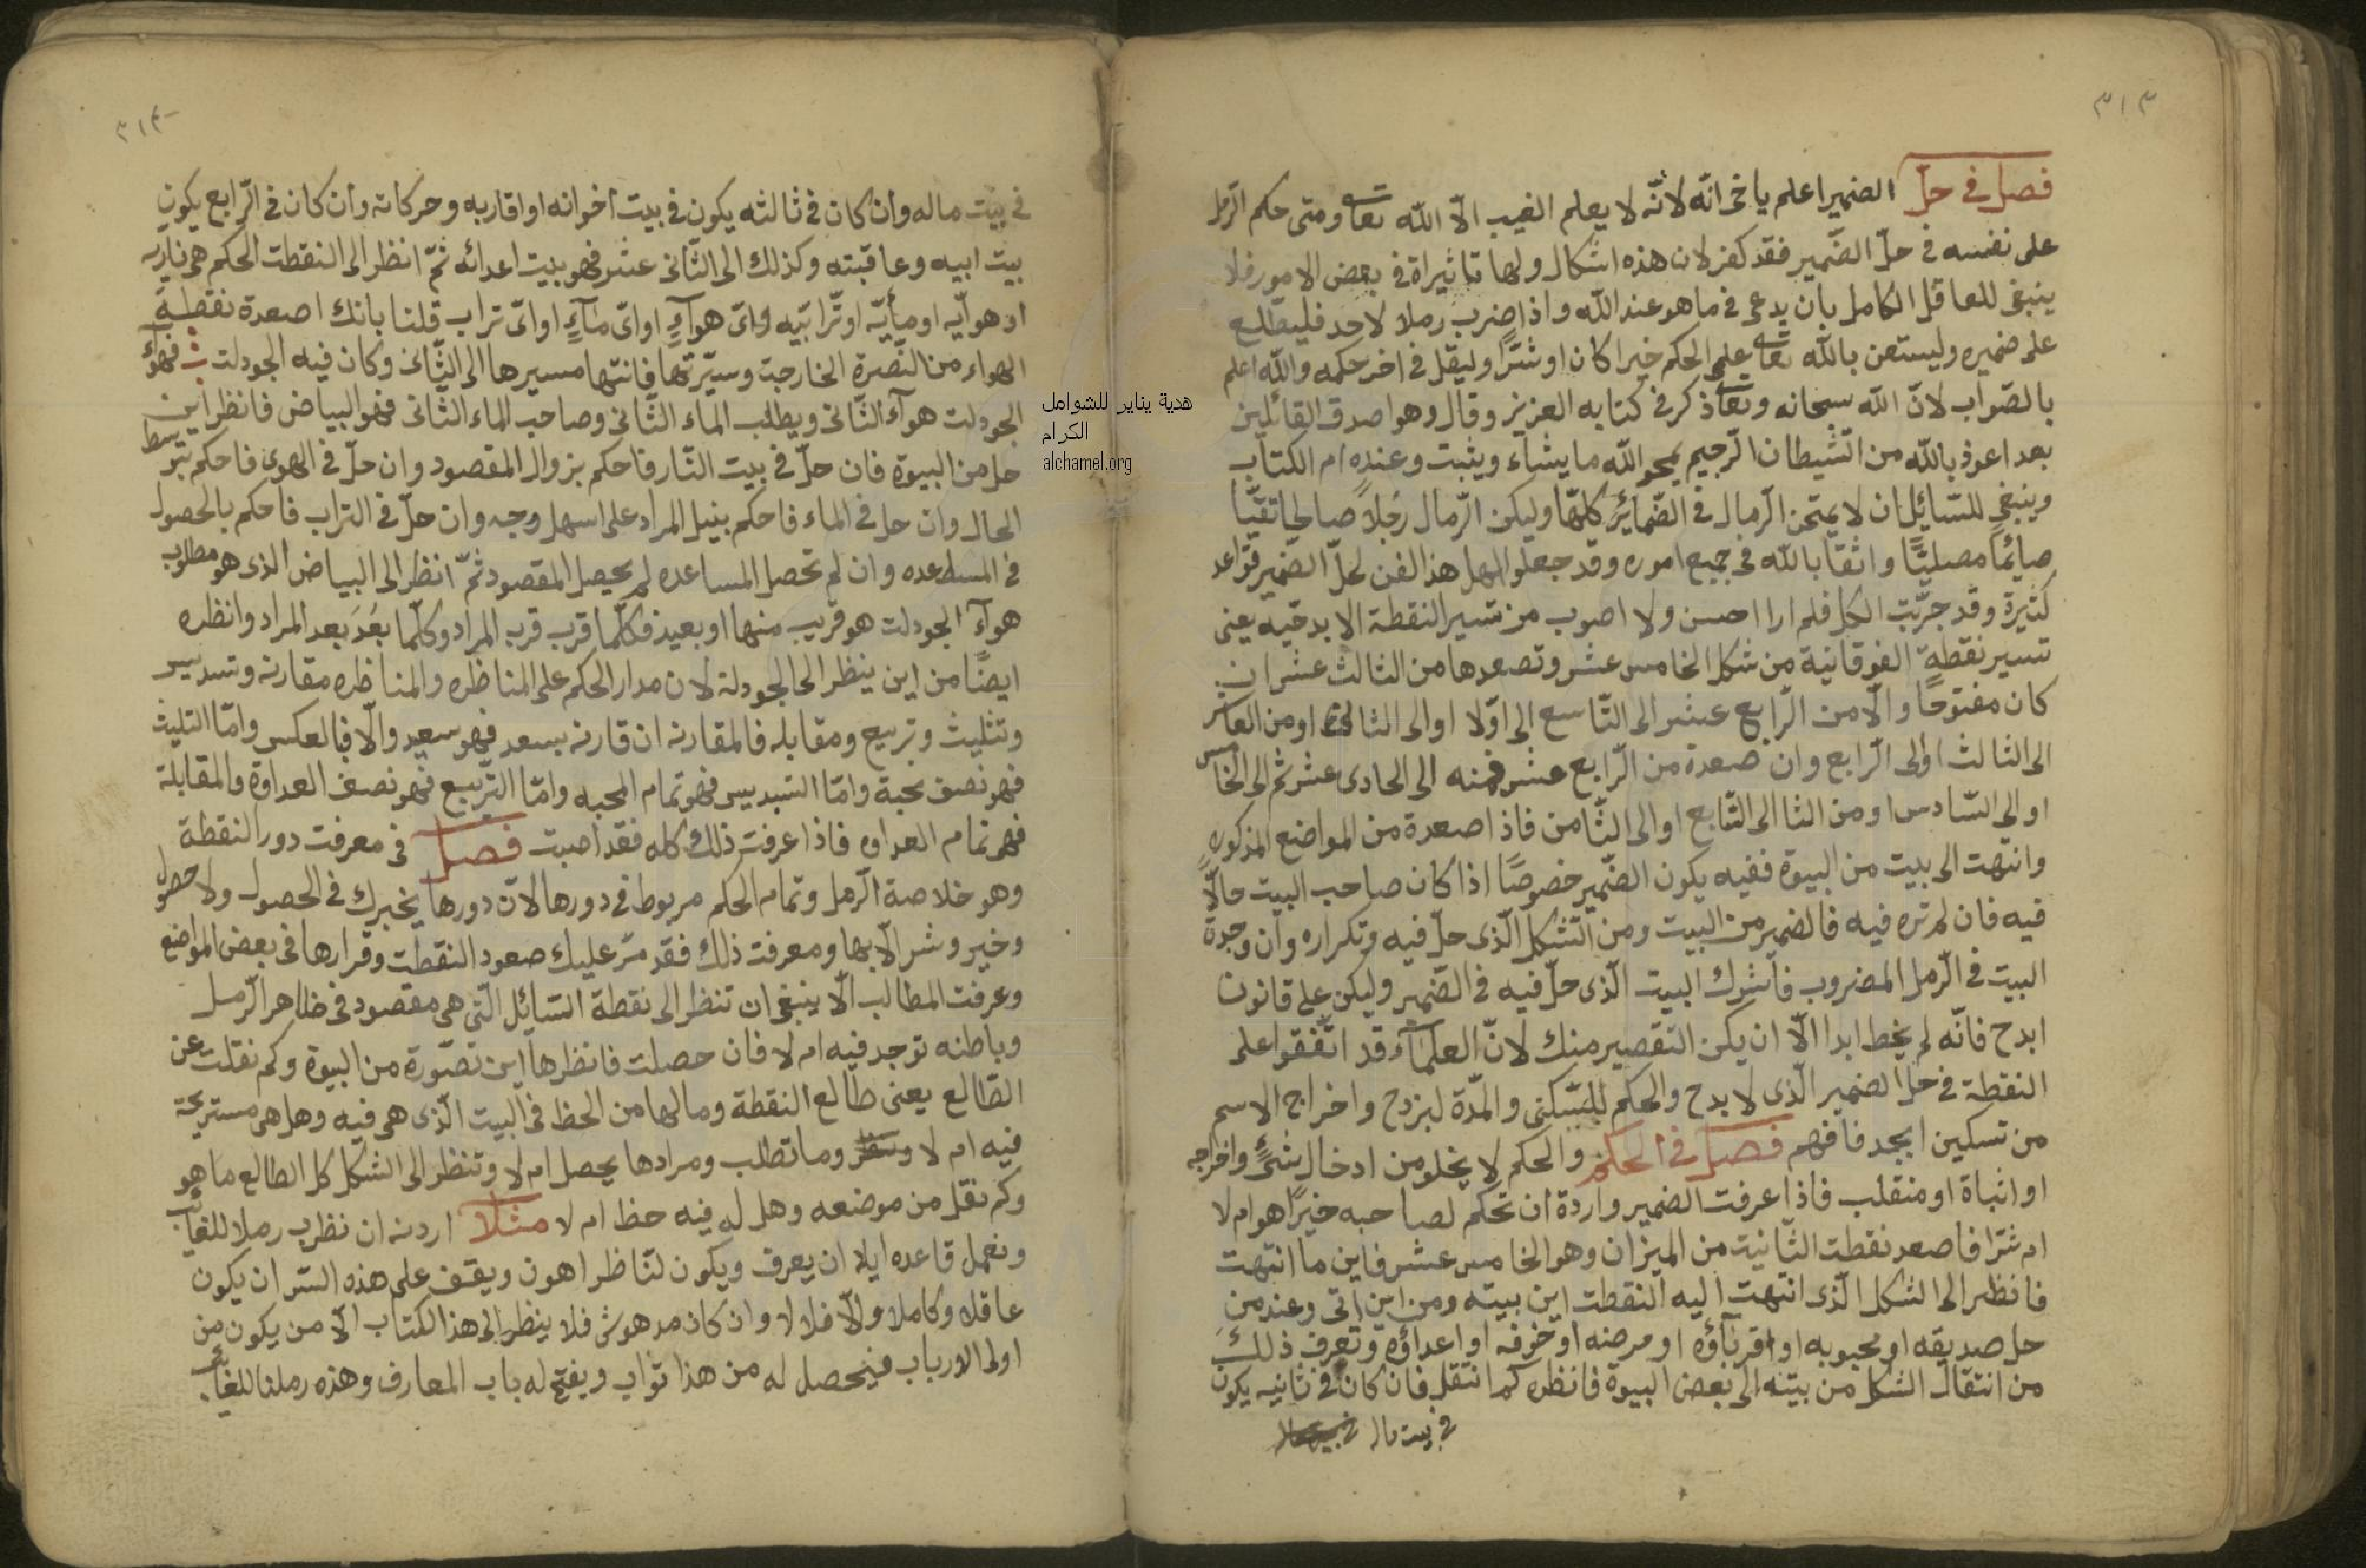 ٣١٣
فصل في حلّ الضمير اعلم يا خى انّه لانّه لا يعلم الغيب الّا اللّه تعا ومتى حكم الرّمل
على نفسه في حلّ الضّمير فقد كفر لان هذه اشكال ولها تاثيراة في بعض الامور فلا
ينبغى للعاقل الكامل بان يدعى في ما هو عند اللّه واذا ضرب رملا لاحد فليطّلع
على ضميره وليستعن باللّه تعا على الحكم خيرا كان او شرّا وليقل في اخر حكمه واللّه اعلم
بالصّواب لانّ اللّه سبحانه وتعا ذكر في كتابه العزيز وقال وهو اصدق القائلين
بعد اعوذ باللّه من الشّيطان الرّجيم يمحو اللّه ما يشاء ويثبت وعنده ام الكتاب
وينبغى للسّائل ان لا يمتحن الرّمال في الضّمائر كلّها وليكن الرّمال رجلاً صالحا تقيّا
صايمًا مصليًّا واثقا باللّه في جميع اموره وقد جعلوا اهل هذا الفن لحلّ الضمير قواعد
كثيرة وقد جرّبت الكل فلم ارا احسن ولا اصوب من تسير النقطة الابدحّيه يعنى
تسير نقطة الفوقانية من شكل الخامس عشر وتصعدها من الثالث عشر ان
كان مفتوحًا والّا من الرّابع عشر الى التّاسع الى اوّلا او الى الثانى او من العاشر
الى الثالث او الى الرّابع وان صعدة من الرّابع عشر فمنه الى الحادى عشر ثم الى الخامس
او الى السّادس او من الثا الى السّابع او الى الثّامن فاذا صعدة من المواضع المذكوره
وانتهت الى بيت من البيوة ففيه يكون الضّمير خصوصًا اذا كان صاحب البيت حالّا
فيه فان لم تره فيه فالضمير من البيت ومن الشّكل الّذى حلّ فيه وتكراره وان وجدة
البيت في الرّمل المضروب فاشرك البيت الّذى حلّ فيه في الضّمير وليكن على قانون
ابدح فانّه لم يخط ابدا الّا ان يكن التقصير منك لانّ العلمآء قد اتّفقوا على
النقطة في حل الضمير الّذى لابدح والحكم للسّكنى والمدّة لبزدح واخراج الاسم
من تسكين ابجد فافهم فصل في الحكم والحكم لا يخلو من ادخال شئ واخراجه
او اثباة او منقلب فاذا عرفت الضمير واردة ان تحكم لصاحبه خيرًا هو ام لا
ام شرّا فاصعد نقطت الثّانيت من الميزان وهو الخامس عشر فاين ما انتهت
فانظر الى الشكل الّذى انتهت اليه النقطت اين بيته ومن اين اتى وعند من
حل صديقه او محبوبه او اقربآؤه او مرضه او خوفه او اعداؤه وتعرف ذلك
من انتقال الشكل من بيته الى بعض البيوة فانظره كم انتقل فان كان في ثانيه يكون
في بيت ماله
٣١٤
في بيت ماله وان كان في ثالثه يكون في بيت اخوانه او اقاربه وحركاته وان كان في الرّابع يكون
بيت ابيه وعاقبته وكذلك الى الثّانى عشر فهو بيت اعدائه ثمّ انظر الى النقطت الحكم هى ناريه
او هوآيّه او مأيّه او ترّابيّه واىّ هوآءٍ او اىّ مآءٍ او اىّ تراب قلنا بانك اصعدة نقطة
الهواء من النّصرة الخارجت وسيّرتها فانتها مسيرها الى الثّانى وكان فيه الجودلت فهوآء
الجودلت هوآء الثّانى ويطلب الماء الثّانى وصاحب الماء الثّانى فهو البياض فانظر اين
حل من البيوة فان حلّ في بيت النّار فاحكم بزوال المقصود وان حلّ في الهوى فاحكم بتوسط
الحال وان حل في الماء فاحكم بنيل المراد على اسهل وجه وان حلّ في التراب فاحكم بالحصول
في المساعده وان لم تحصل المساعده لم يحصل المقصود ثمّ انظر الى البياض الذى هو مطلوب
هوآء الجودلت هو قريب منها او بعيد فكلّما قرب قرب المراد وكلّما بعُدَ بعد المراد وانظره
ايضًا من اين ينظر الى الجودلة لان مدار الحكم على المناظره والمناظره مقارنه وتسديس
وتثليث وتربيع ومقابله فالمقارنه ان قارنه بسعد فهو سعيد والّا فبالعكس وامّا التليث
فهو نصف محبة وامّا التسديس فهو تمام المحبه وامّا التّربيع فهو نصف العداوة والمقابلة
فهو تمام العداوه فاذا عرفت ذلك كله فقد اصبت فصل في معرفت دور النقطة
وهو خلاصة الرّمل وتمام الحكم مربوط في دورها لانّ دورها يخبرك في الحصول ولا حصول
وخير وشر الّا بها ومعرفت ذلك فقد مرّ عليك صعود النقطت وقرارها في بعض المواضع
وعرفت المطالب الّا ينبغى ان تنظر الى نقطة السّائل الّتى هى مقصود في ظاهر الرّمل
وباطنه توجد فيه ام لا فان حصلت فانظرها اين تصوّرة من البيوة وكم نقلت عن
الطّالع يعنى طالع النقطة وما لها من الحظ في البيت الّذى هى فيه وهل هى مستريحة
فيه ام لا وما تطلب ومرادها يحصل ام لا وتنظر الى الشكل كل الطالع ما هو
وكم نقل من موضعه وهل له فيه حظ ام لا مثلا اردنه ان نظرب رملا للغائب
ونعمل قاعده ايلا ان يعرف ويكون لنّاظر اهون ويقف على هذه السّر ان يكون
عاقلا وكاملا والّا فلا لا وان كان مدهوش فلا ينظر الى هذا الكتاب الّا من يكون من
اولى الارباب فيحصل له من هذا ثواب ويفتح له باب المعارف وهذه رملنا للغائب
هدية يناير للشوامل
الكرام
alchamel.org